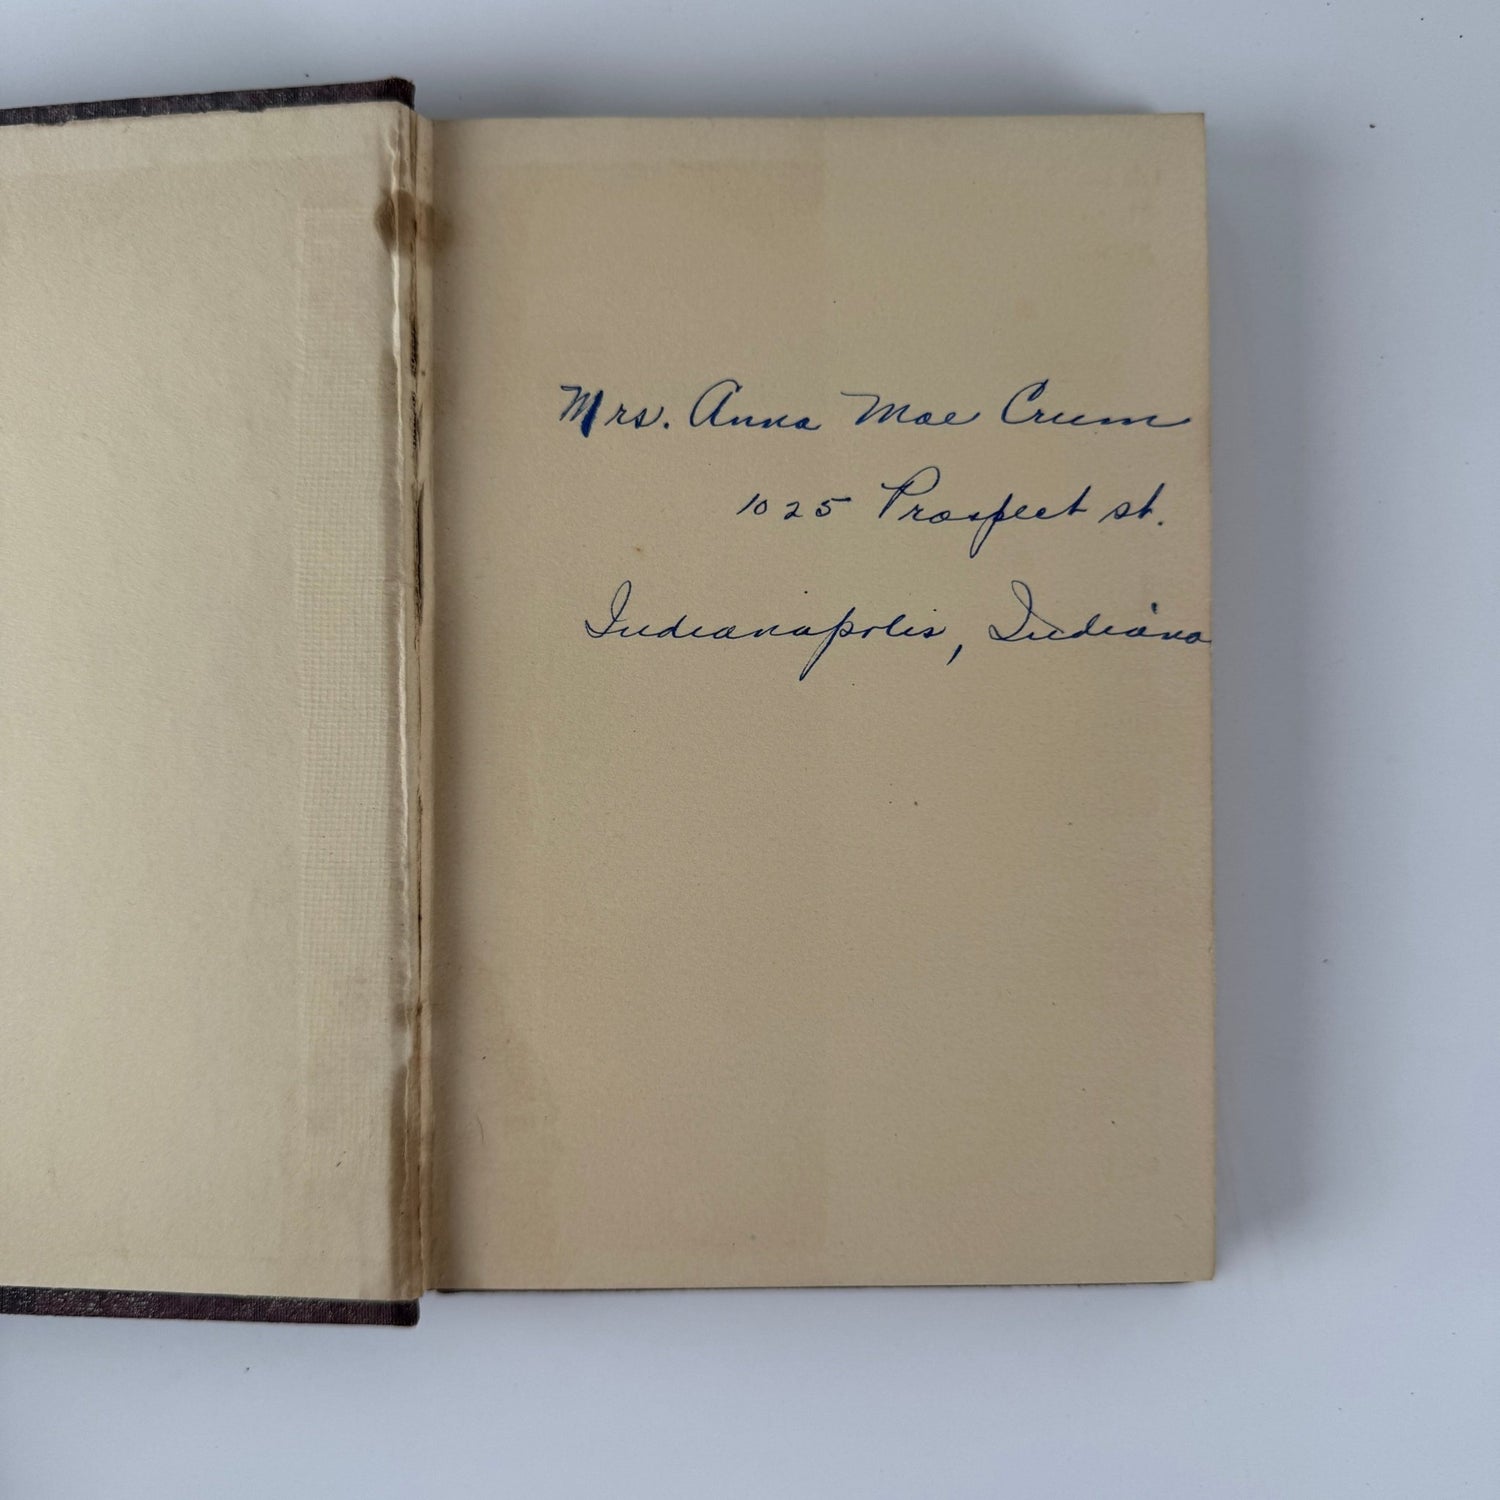 Mrs. Anna Mae Crum
1025 Prospect st.
Indianapolis, Indiana